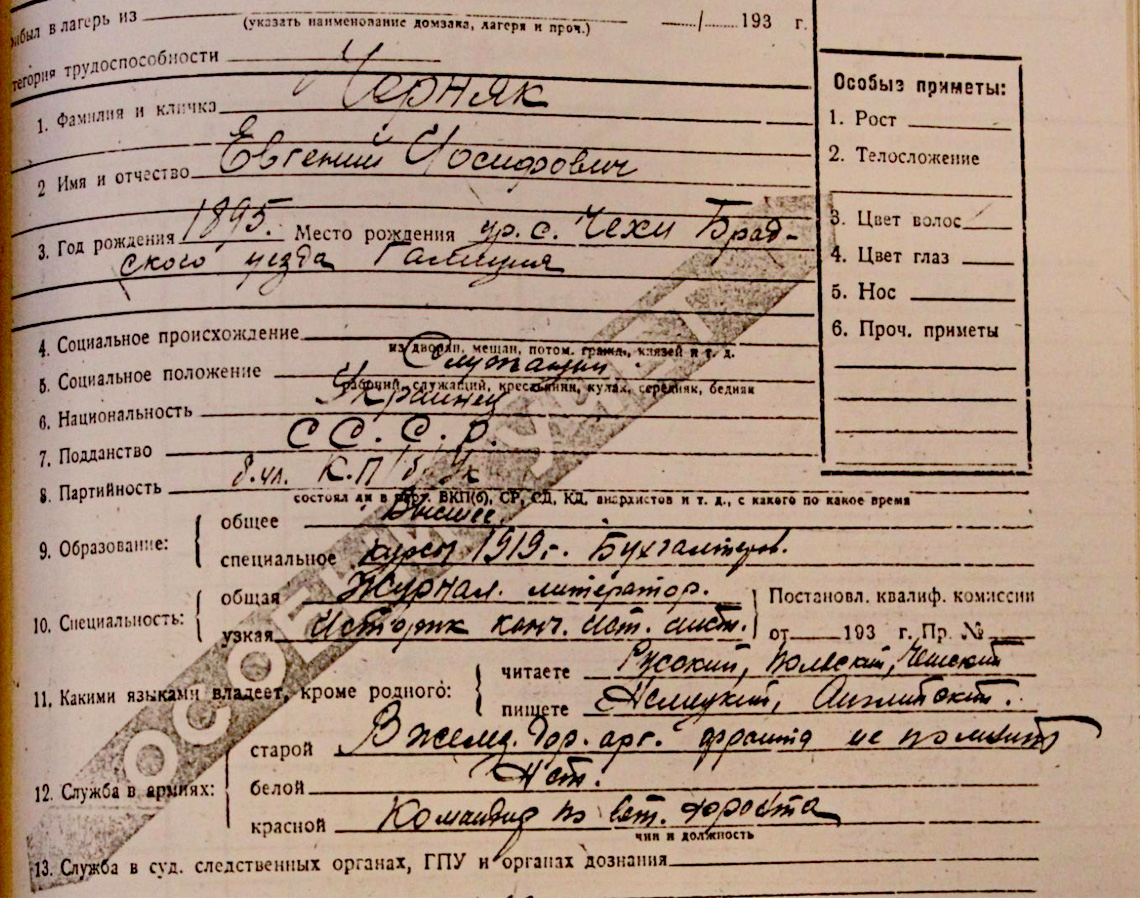 был в лагерь из ____ /____ 193 г.
(указать наименование домзака, лагеря и проч.)
тегория трудоспособности
1. Фамилия и кличка Черняк
2 Имя и отчество Евгений Иосифович
3. Год рождения 1895. Место рождения ур. с. Чехи Брад-
ского уезда Галиция
4. Социальное происхождение
из дворян, мещан, потом. гражд., князей и т. д.
5. Социальное положение Служащий
рабочий, служащий, крестьянин, кулак, середняк, бедняк
6. Национальность Украинец
7. Подданство С С. С. р.
8. Партийность б. чл. К.П/б/У
состоял ли в парт. ВКП(б), СР, СД, КД, анархистов и т. д., с какого по какое время
9. Образование: общее Высшее.
специальное курсы 1919 г. Бухгалтеров.
10. Специальность: общая Журнал. литератор.
узкая Историк
Постановл. квалиф. комиссии
от ____ 193 г. Пр. №
11. Какими языками владеет, кроме родного: читаете Русский, Польский, Чешский
пишете Немецкий, Английский.
12. Служба в армиях: старой В желез. дор. фронта не помнит
белой Нет.
красной Командир фронта
чин и должность
13. Служба в суд. следственных органах, ГПУ и органах дознания
Особыз приметы:
1. Рост
2. Телосложение
3. Цвет волос
4. Цвет глаз
5. Нос
6. Проч. приметы
ОСОБЫЙ УЧЕТ